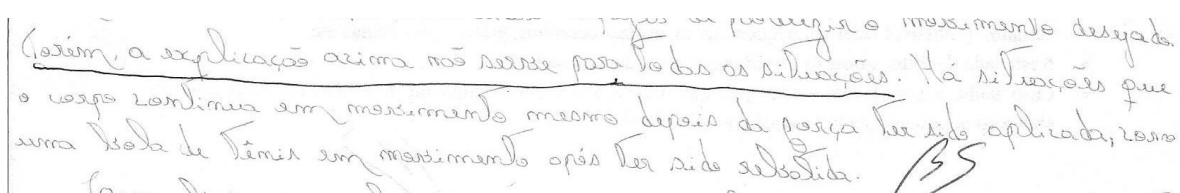 produzir o movimento desejado.
Porém, a explicação acima não serve para todas as situações. Há situações que
o corpo continua em movimento mesmo depois da força ter sido aplicada, como
uma bola de tênis em movimento após ter sido rebatida.
BS